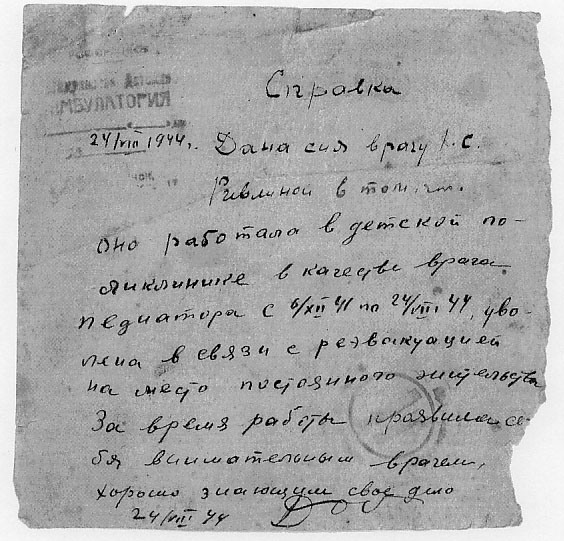 Детская
АМБУЛАТОРИЯ
Справка
24/VIII 1944 г. Дана сия врачу Г. С.
Ривлиной в том, что
оно работала в детской по-
ликлинике в качестве врача
педиатора с 6/XII 41 по 24/VIII 44, уво-
лена в связи с реэвакуацией
на место постоянного жительства
За время работы проявила се-
бя внимательным врачем,
хорошо знающим свое дело
24/VIII 44